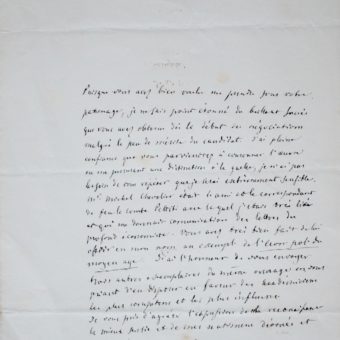 Puisque vous avez bien voulu me prendre sous votre
patronage, je ne suis point étonné du brillant succès
que vous avez obtenu dès le début des négociations
malgré le peu de mérite du candidat. J'ai pleine
confiance que vous parviendrez à couronner l'œuvre
en me procurant une distinction à la quelle, je n'ai pas
besoin de vous répéter que je serai extrêmement sensible.
Mr Michel Chevalier était l'ami et le correspondant
de feu le comte Petitti avec le quel j'étais très lié
et qui me donnait communication des lettres du
profond économiste. Vous avez très bien fait de lui
offrir en mon nom un exemplaire de l'
moyen age. J'ai l'honneur de vous envoyer
trois autres exemplaires du même ouvrage en vous
priant d'en disposer en faveur des académiciens
les plus compétens et les plus influens.
Je vous prie d'agréer l'expression de la reconnaissance
la mieux sentie et de mes sentimens dévoués et